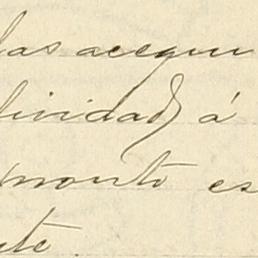 las acequi
lividad á
monto es
te.